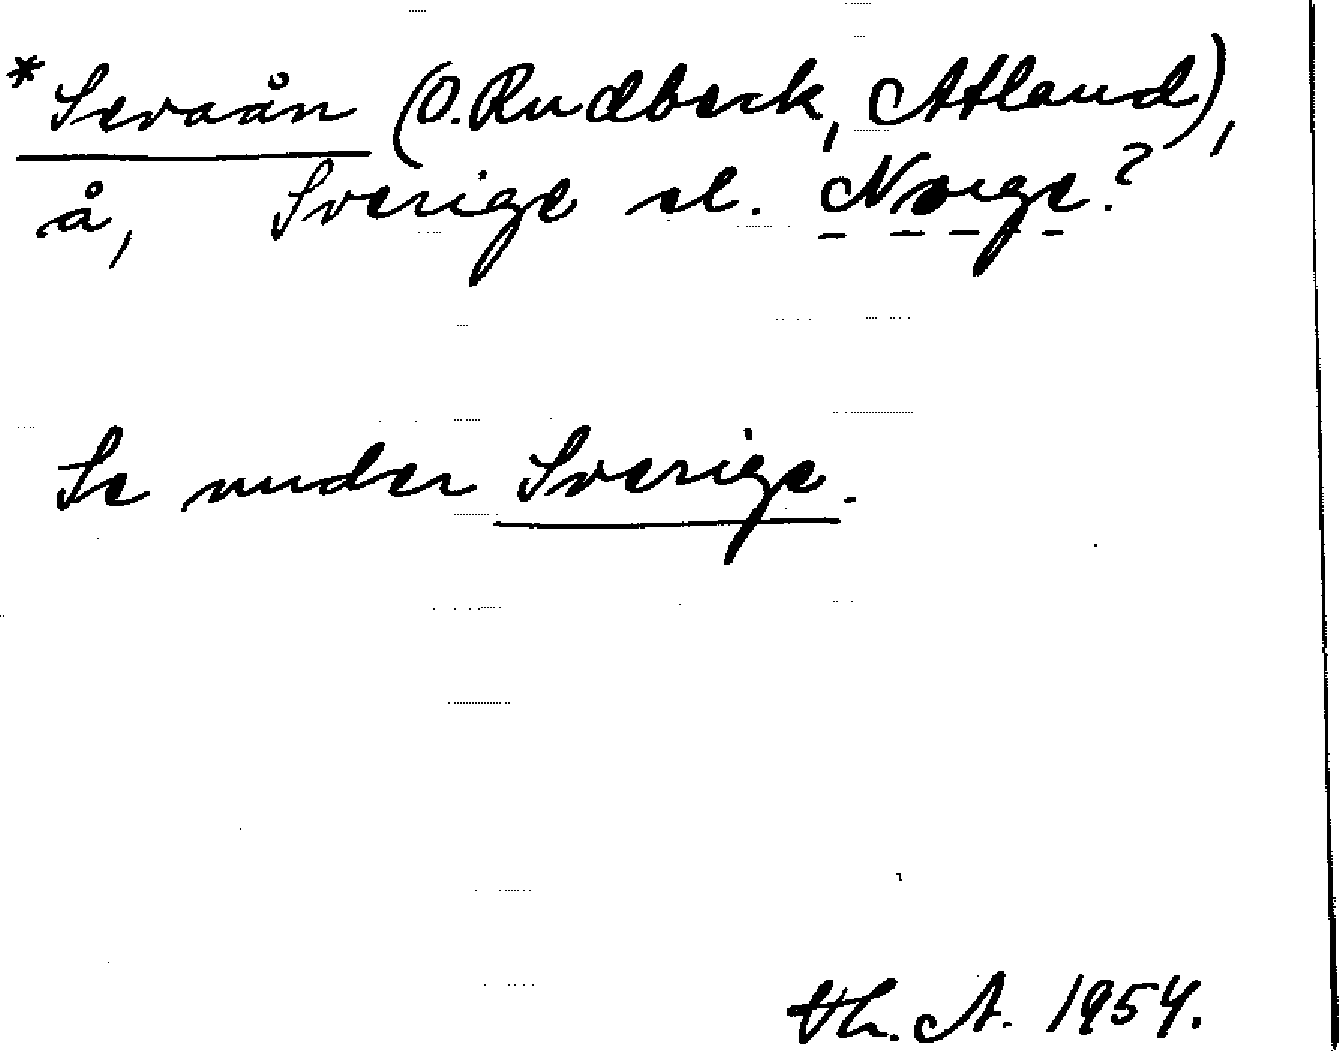 *Sevaån (O. Rudbeck, Atland),
å, Sverige el. Norge?
Se under Sverige.
th. A. 1954.